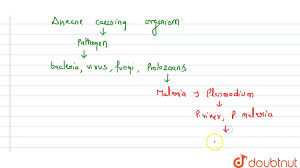 Disease causing organism
↓
Pathogen
↓
bacteria, virus, fungi, Protozoans
↓
Malaria → Plasmodium
↓
P. vivax, P. malaria
↓
doubtnut